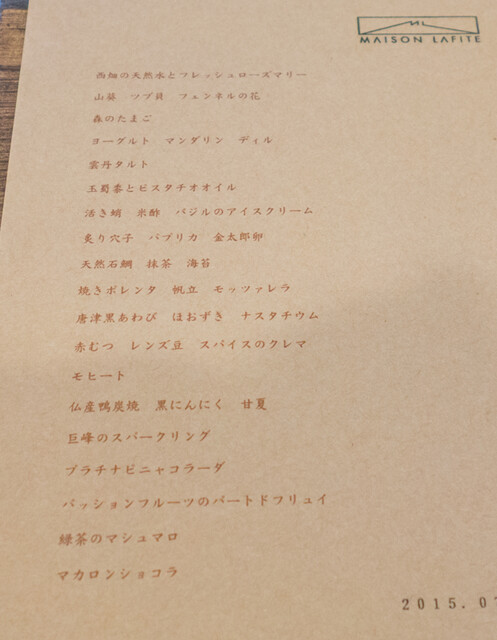 MAISON LAFITE
西畑の天然水とフレッシュローズマリー
山葵 ツブ貝 フェンネルの花
森のたまご
ヨーグルト マンダリン ディル
雲丹タルト
玉蜀黍とピスタチオオイル
活き蛸 米酢 バジルのアイスクリーム
炙り穴子 パプリカ 金太郎卵
天然石鯛 抹茶 海苔
焼きポレンタ 帆立 モッツァレラ
唐津黒あわび ほおずき ナスタチウム
赤むつ レンズ豆 スパイスのクレマ
モヒート
仏産鴨炭焼 黒にんにく 甘夏
巨峰のスパークリング
プラチナピニャコラーダ
パッションフルーツのパートドフリュイ
緑茶のマシュマロ
マカロンショコラ
2015.07